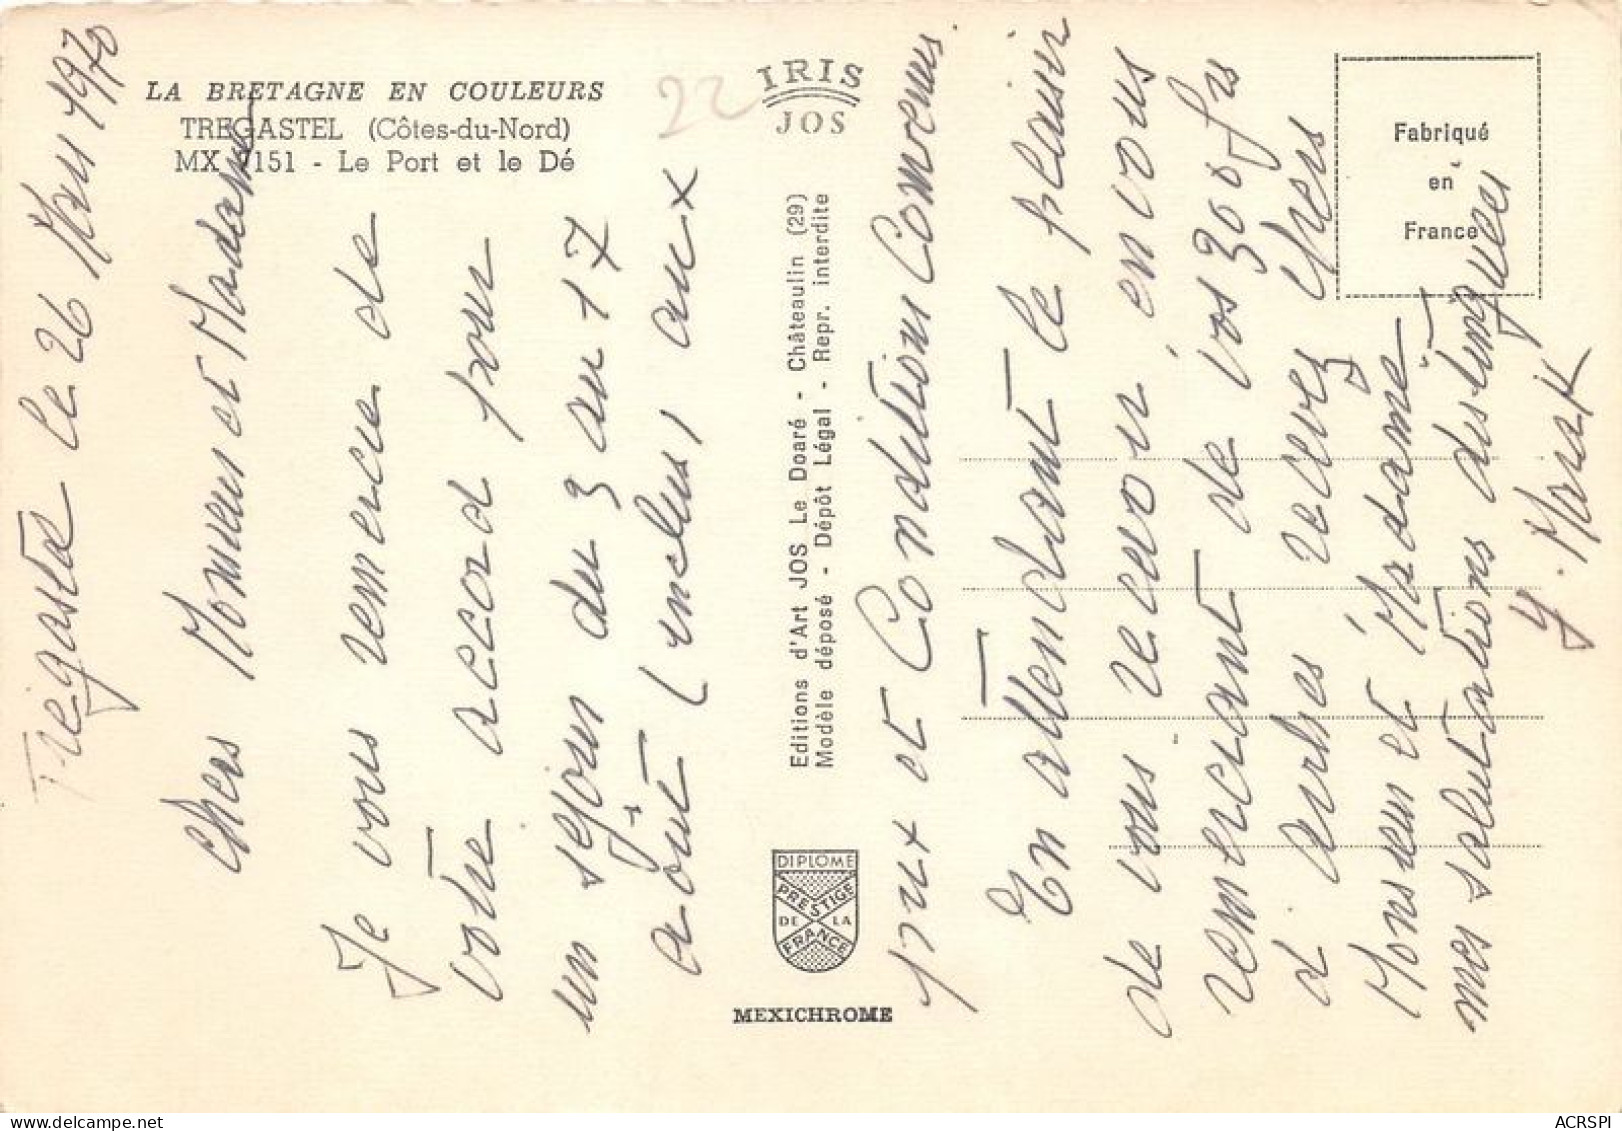 LA BRETAGNE EN COULEURS
TREGASTEL (Côtes-du-Nord)
MX 7151 - Le Port et le Dé
22
IRIS
JOS
Fabriqué
en
France
Editions d'Art JOS Le Doaré - Châteaulin (29)
Modèle déposé - Dépôt Légal - Repr. interdite
DIPLOME
PRESTIGE
DE LA
FRANCE
MEXICHROME
Tregastel le 26 Mai 1970
Chers Monsieur et Madame
Je vous remercie de
votre accord pour
un séjour du 3 au 17
août (inclus) aux
prix et Conditions Convenus.
En attendant le plaisir
de vous recevoir en vous
remerciant de vos 300 frs
d'arrhes recevez chers
Monsieur et Madame
mes salutations distinguées
ACRSPI